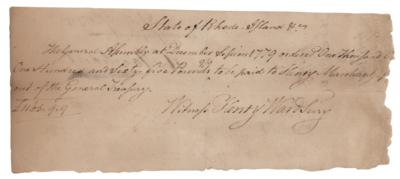 State of Rhode-Island &c.
The General Assembly at December Session 1779 ordered One Thousand
One Hundred and Sixty five Pounds 9/9 to be paid to Henry Marchant
out of the General Treasury.
£1165.9.9 Witness Henry Ward Secy